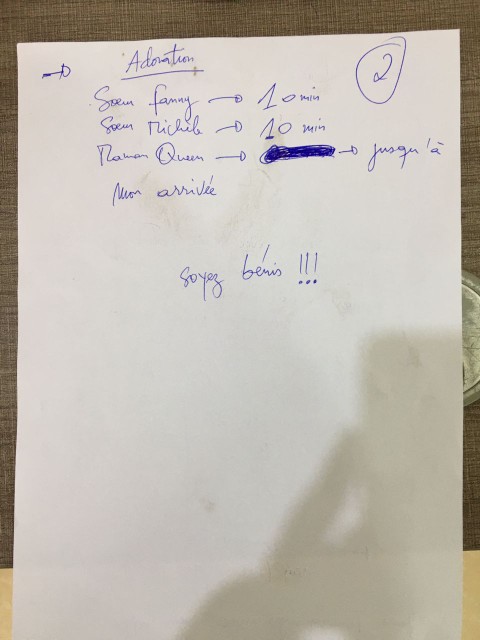 2
→ Adoration
Soeur Fanny → 10 min
Soeur Michele → 10 min
Maman Queen → → jusqu'à
Mon arrivée
soyez bénis !!!